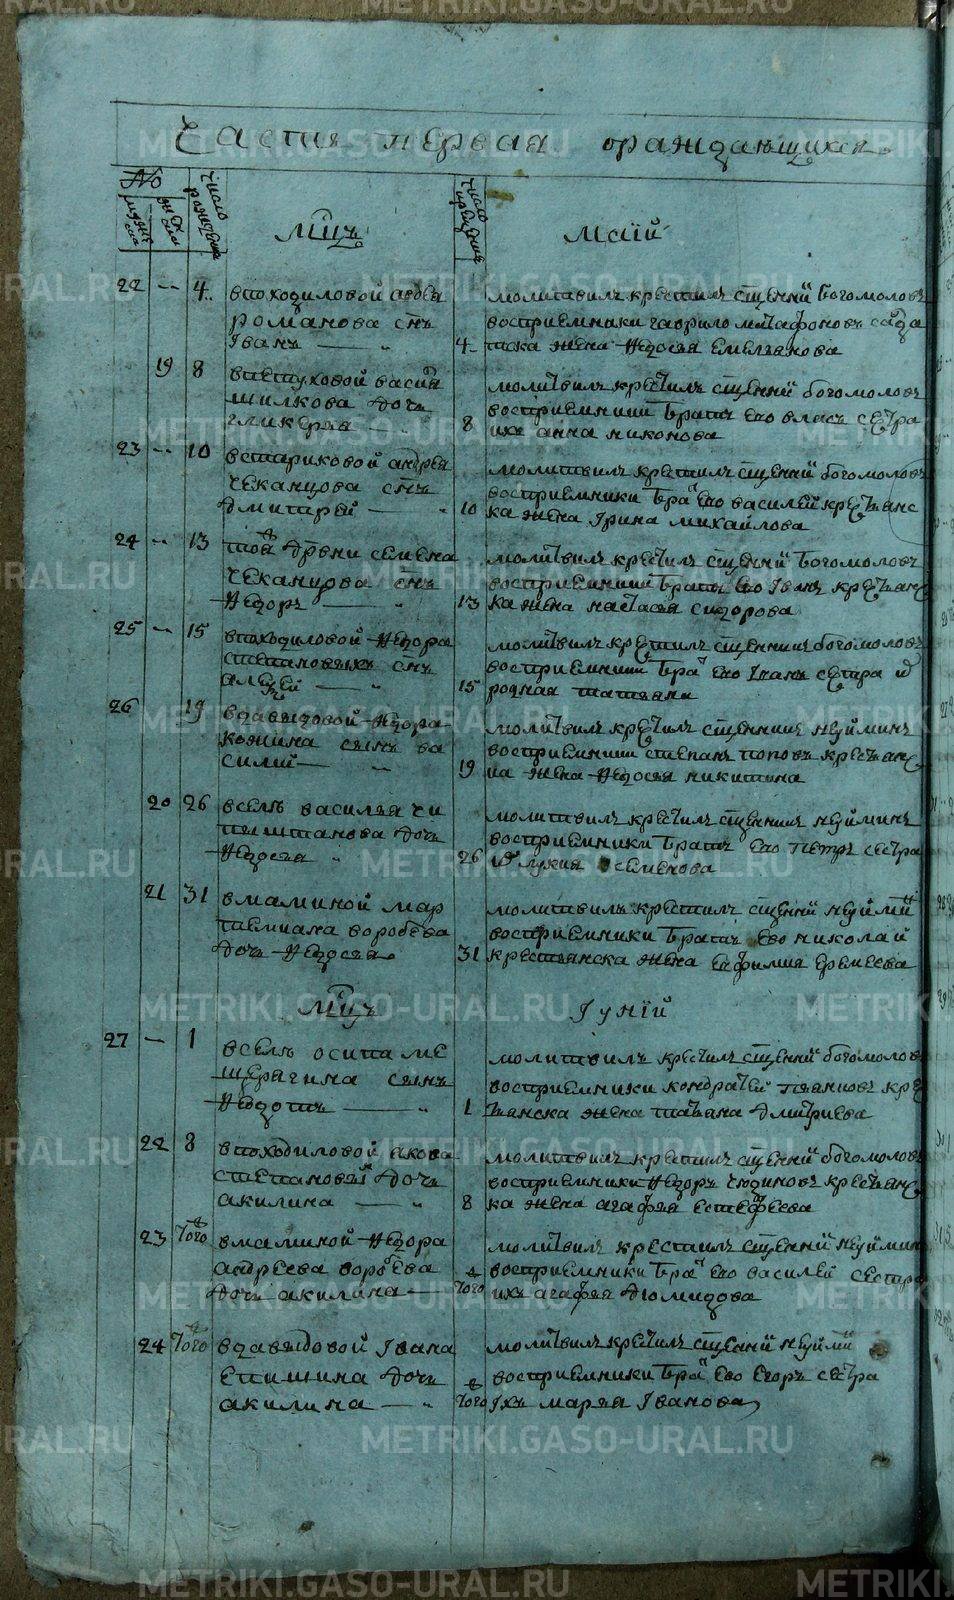 Часть первая ораждающихся
№
число рождения
Мцъ
число крещения
Маїй
22 -- 4 впоходиловой авдея
романова снъ
Іванъ
молитвилъ крестилъ сщенній богомоловъ
восприемники гаврило митафоновъ солда
4 тска жена Федосья Емельянова
19 8 впетуховой васи
шилкова дочь
гликерья
молитвилъ крестилъ сщенній богомоловъ
восприемники братъ Ево власъ сестра
8 ихъ анна никонова
23 -- 10 встариковой андрея
чеканцова снъ
дмитрей
молитвилъ крестилъ сщенній богомоловъ
восприемники бра Ево василей крестьянс
10 ка жена Ірина михайлова
24 -- 13 той дрвни семена
чеканцова снъ
Федоръ
молитвилъ крестилъ сщенній богомоловъ
восприемники братъ Ево Іванъ крестьянс
13 ка жена настасья сидорова
25 -- 15 впоходиловой Федора
степановыхъ снъ
алезей
молитвилъ крестилъ сщенникъ богомоловъ
восприемники бра Ево Іванъ сестра
15 родная татьяна
26 19 вдавыдовой Федора
кожина сынъ ва
силий
молитвилъ крестилъ сщенникъ неуйминъ
восприемники степанъ поповъ крестьянс
19 ка жена Федосья никитина
20 26 вселѣ василья чи
пыштанова дочь
Федосья
молитвилъ крестилъ сщенникъ неуйминъ
восприемники братъ Ево петръ сестра
26 лукия семенова
21 31 вмаминой мар
темиана воробьева
дочь Федосья
молитвилъ крестилъ сщенній неуймі
восприемники братъ Ево николай
31 крестьянска жена Еуфимия Еремеева
Мцъ
Іуній
27 -- 1 вселѣ осипа ме
щерягина сынъ
Федотъ
молитвилъ крестилъ сщенній богомоловъ
восприемники кондратей пьянковъ крес
1 тьянска жена татьяна дмитриева
22 8 впоходиловой якова
степановыхъ дочь
акилина
молитвилъ крестилъ сщенній богомоловъ
восприемники Федоръ чюдиновъ крестьянс
8 ка жена агафья Естефеева
23 Того вмаминой Федора
андреева воробьева
дочь акилина
молитвилъ крестилъ сщенній неуймин
восприемники бра Ево василей сестра
Того ихъ агафья диомидова
24 Того вдавыдовой Івана
Епишина дочь
акилина
молитвилъ крестилъ сщеній неуймі
восприемники бра Ево Егоръ сестра
Того Іхъ марья Іванова
METRIKI.GASO-URAL.RU